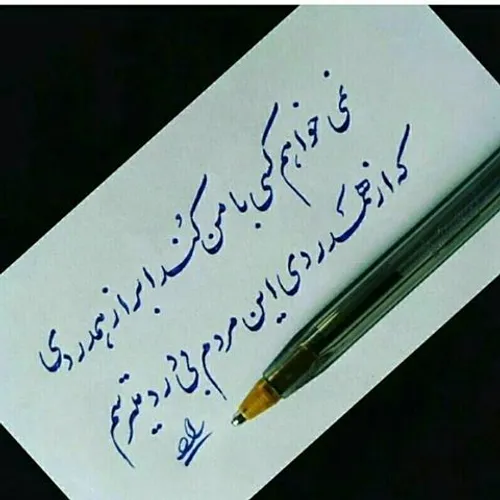 نمی خواهم کسی با من کُند ابراز همدردی
که از همدردی این مردم بی درد میترسم